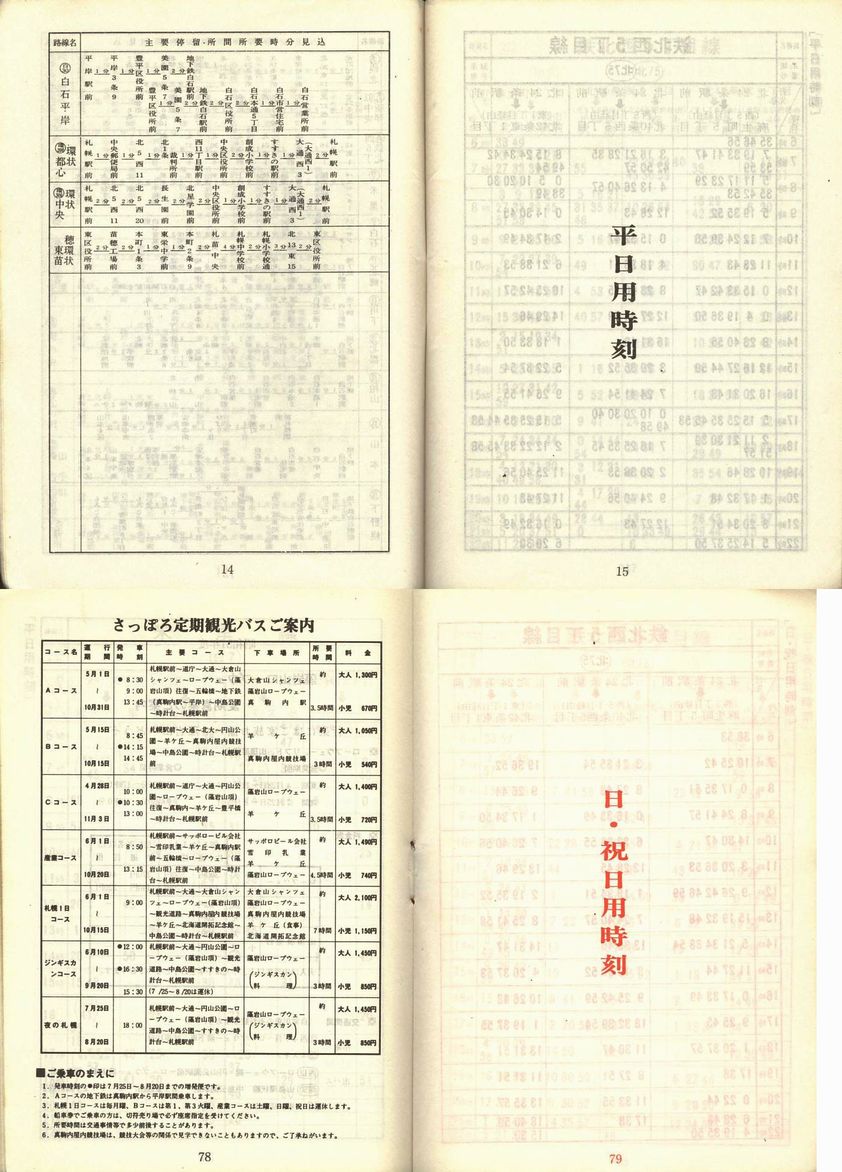 路線名 主要停留所間所要時分見込
白石平岸
平岸駅前 1分 平岸3条9 1分 豊平区役所前 1分 美園5条7 2分 地下鉄白石駅前
豊平区役所前 2分 美園5条7 2分 地下鉄白石駅前 2分 白石区役所前 2分 白石本通5丁目 1分 白石市営住宅前 1分 白石営業所前
環状都心
札幌駅前 中央郵便局前 北5西11 北1条 裁判所前 西11丁目駅前 中央区役所前 創成小学校前 すすきの駅前 大通西3 (大通西1) 札幌駅前
環状中央
札幌駅前 北5西11 北5西20 長生園前 北星学園前 中央区役所前 創成小学校前 すすきの駅前 大通西3 (大通西1) 札幌駅前
東苗穂環状
東区役所前 苗穂工場前 本町1条3 東栄中学前 本町2条9 札苗中央 札幌中学校前 札幌小学校通 北13東15 東区役所前
14
平日用時刻
15
さっぽろ定期観光バスご案内
コース名 運行期間 発車時刻 主要コース 下車場所 所要時間 料金
Aコース 5月1日~10月31日 ●8:30 9:00 13:45 札幌駅前~道庁~大通~大倉山シャンツェ~ロープウェー(藻岩山頂)往復~五輪橋~地下鉄(真駒内駅~平岸)~中島公園~時計台~札幌駅前 大倉山シャンツェ 藻岩山ロープウェー 真駒内駅 約3.5時間 大人1,300円 小児670円
Bコース 5月15日~10月15日 8:45 ●14:15 14:45 札幌駅前~大通~北大~円山公園~羊ケ丘~真駒内屋内競技場~中島公園~時計台~札幌駅前 羊ケ丘 真駒内屋内競技場 約3時間 大人1,050円 小児540円
Cコース 4月28日~11月3日 10:00 ●10:30 13:00 札幌駅前~道庁~大通~円山公園~ロープウェー(藻岩山頂)往復~真駒内~羊ケ丘~豊平橋~時計台~札幌駅前 藻岩山ロープウェー 羊ケ丘 約3.5時間 大人1,400円 小児720円
産業コース 6月1日~10月20日 8:50 13:15 札幌駅前~サッポロービル会社~雪印乳業~羊ケ丘~真駒内駅前~五輪橋~ロープウェー(藻岩山頂)往復~中島公園~時計台~札幌駅前 サッポロビール会社 雪印乳業 羊ケ丘 藻岩山ロープウェー 約4.5時間 大人1,490円 小児740円
札幌1日コース 6月1日~10月15日 9:00 札幌駅前~大通~大倉山シャンツェ~ロープウェー(藻岩山頂)~観光道路~真駒内屋内競技場~羊ケ丘~北海道開拓記念館~中島公園~時計台~札幌駅前 大倉山シャンツェ 藻岩山ロープウェー 真駒内屋内競技場 羊ケ丘(食事) 北海道開拓記念館 約7時間 大人2,100円 小児1,150円
ジンギスカンコース 6月10日~9月20日 ●12:00 ●16:30 15:30 札幌駅前~大通~円山公園~ロープウェー(藻岩山頂)~観光道路~中島公園~すすきの~時計台~札幌駅前 (7/25~8/20は運休) 藻岩山ロープウェー (ジンギスカン料理) 約3時間 大人1,450円 小児850円
夜の札幌 7月25日~8月20日 18:00 札幌駅前~大通~円山公園~ロープウェー(藻岩山頂)~観光道路~中島公園~すすきの~時計台~札幌駅前 藻岩山ロープウェー (ジンギスカン料理) 約3時間 大人1,450円 小児850円
■ご乗車のまえに
1.発車時刻の●印は7月25日~8月20日までの増発便です。
2.Aコースの地下鉄は真駒内駅から平岸駅間乗車します。
3.札幌1日コースは毎月曜、Bコースは第1、第3火曜、産業コースは土曜、日曜、祝日は運休します。
4.船車券でご乗車の方は、切符売り場で必ず座席指定を受けてください。
5.所要時間は交通事情等で多少前後することがあります。
6.真駒内屋内競技場は、競技大会等の関係で見学できないこともありますので、ご了承ねがいます。
78
日・祝日用時刻
79